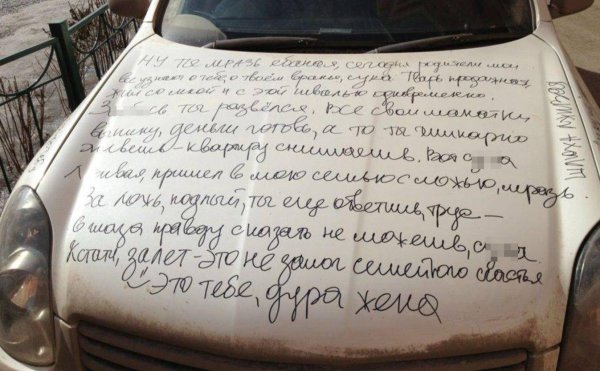 НУ ТЫ МРАЗЬ ебаная, сегодня родители мои
все узнают о тебе, о твоём вранье, сука. Тварь продажная,
жил со мной и с этой швалью одновременно.
ты развёлся. Все свои манатки
выкину, деньги готовь, а то ты шикарно
живешь - квартиру снимаешь. Вот
лживая, пришел в мою семью с ложью, мразь.
За ложь, подлый, ты еще ответишь, трус -
в глаза правду сказать не можешь,
Кстати, залет - это не залог семейного счастья
Это тебе, дура жена
шлюхи